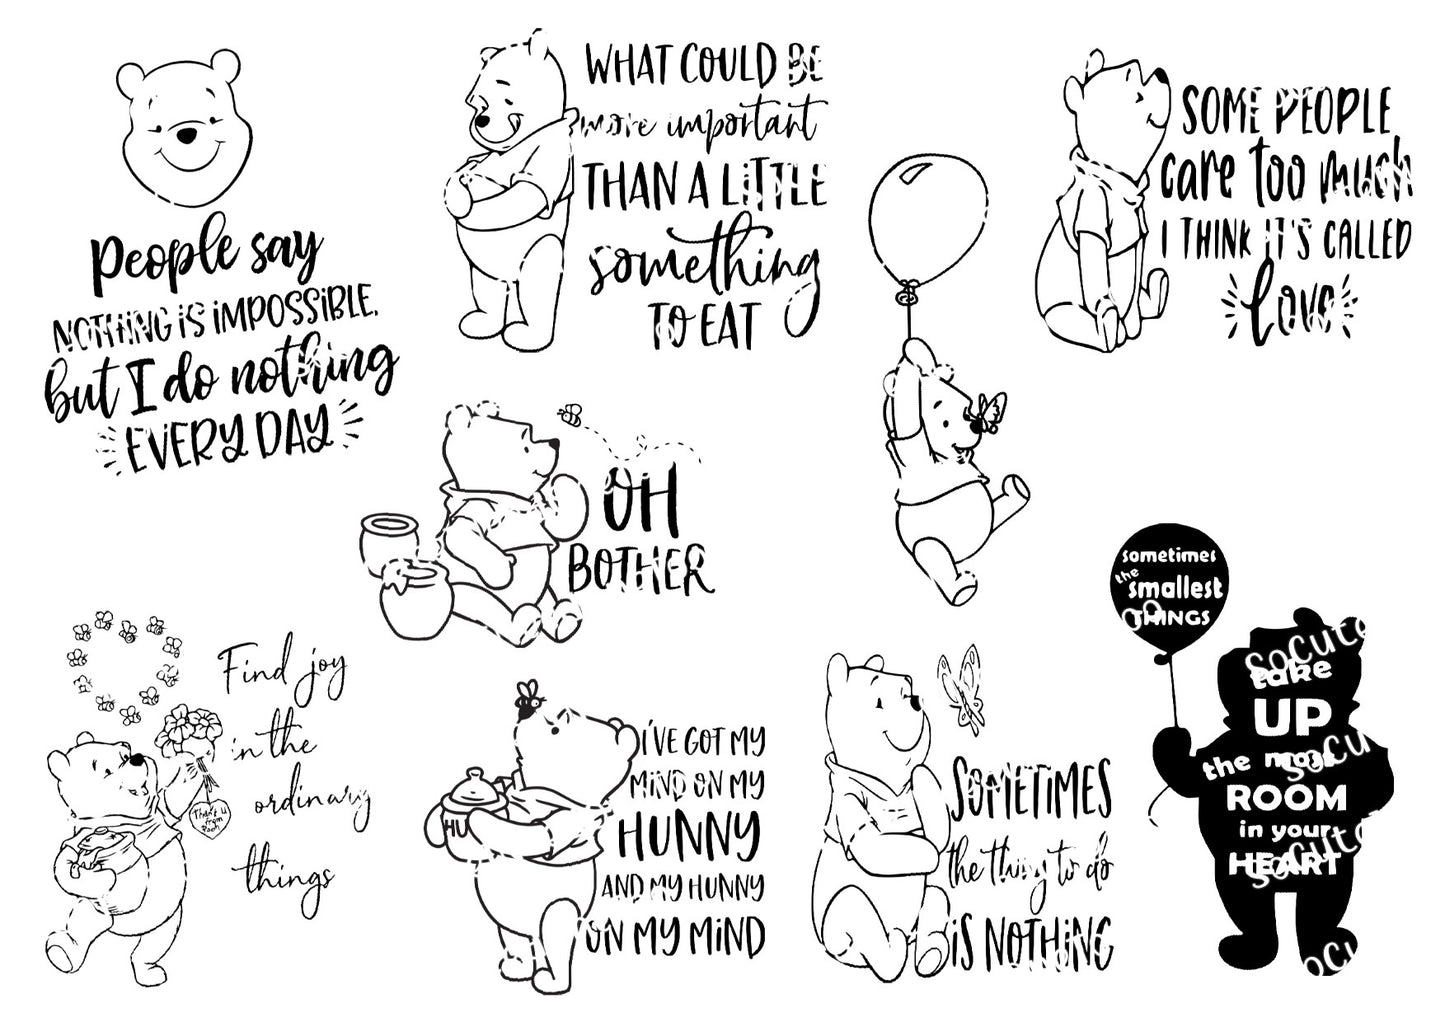 People say
NOTHING IS IMPOSSIBLE,
but I do nothing
EVERY DAY
WHAT COULD BE
more important
THAN A LITTLE
something
TO EAT
SOME PEOPLE
care too much
I THINK IT'S CALLED
love
OH
BOTHER
sometimes
the
smallest
THINGS
socute
take
UP
socu
the most
ROOM
in your
HEART
socute
socu
Find joy
in the
ordinary
things
Thank u
from
Pooh
HU
I'VE GOT MY
MIND ON MY
HUNNY
AND MY HUNNY
ON MY MIND
SOMETIMES
the thing to do
IS NOTHING